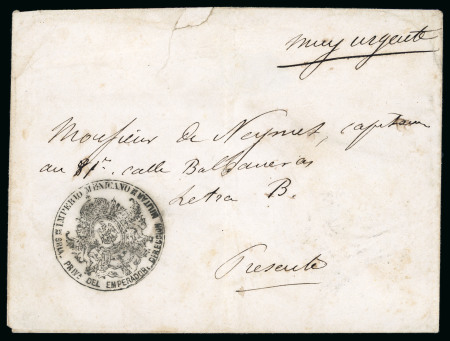 muy urgente
Monsieur de Neymet, capitaine
au 81r. calle Balbaneras
Letra B.
IMPERIO MEXICANO
SRIA. PRIVA. DEL EMPERADOR. DIRECCION MILITAR
Presente